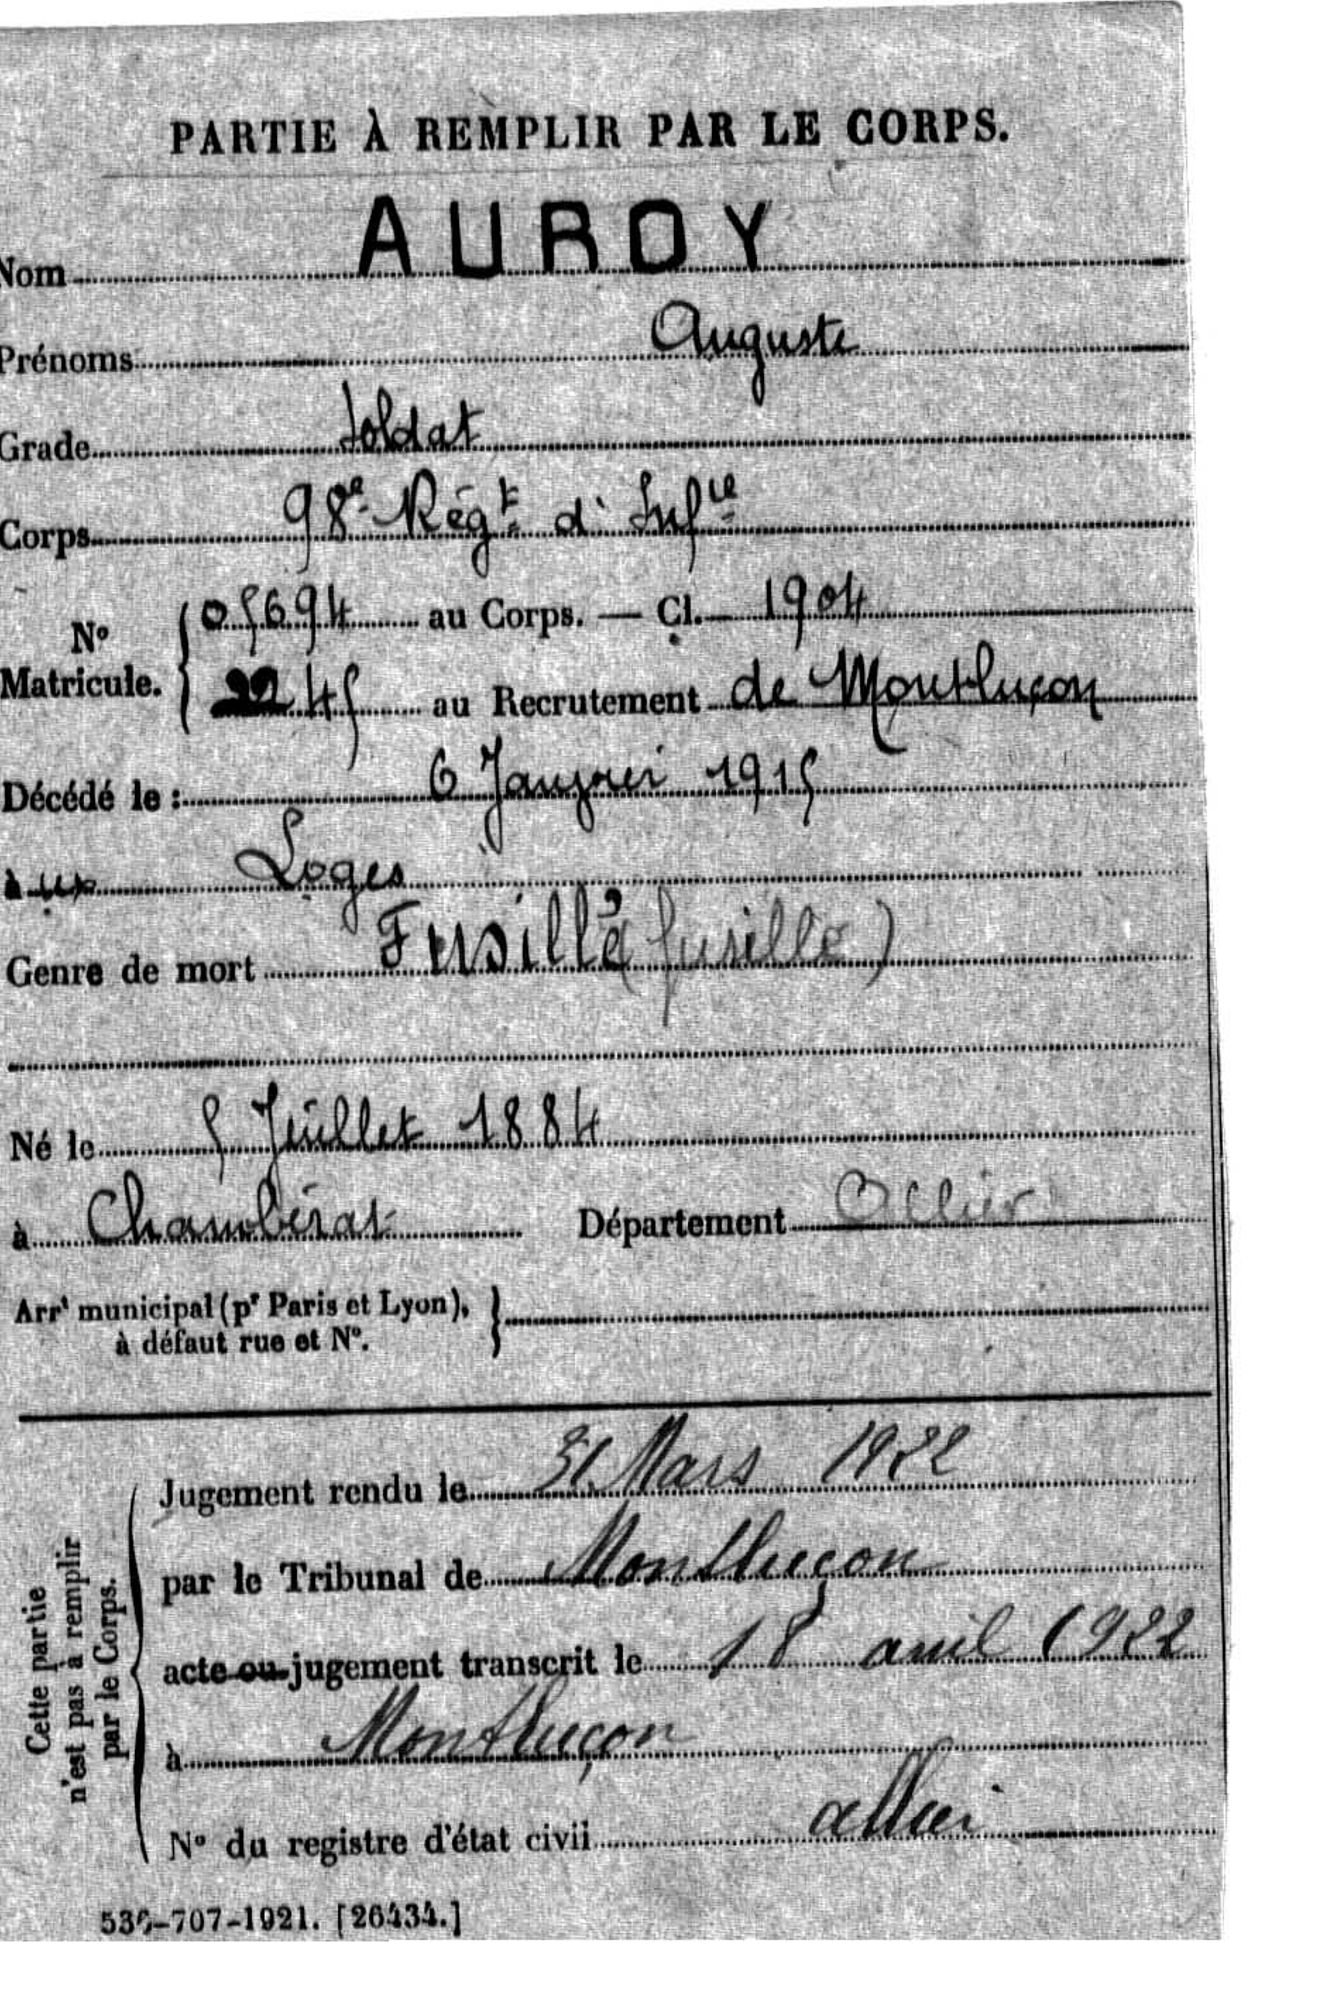 PARTIE À REMPLIR PAR LE CORPS.
Nom AUROY
Prénoms Auguste
Grade Soldat
Corps 98e Régt d'Infie
No Matricule. { 05694 au Corps. — Cl. 1904
2245 au Recrutement de Montluçon
Décédé le : 6 Janvier 1915
à ux Loges
Genre de mort Fusillé (fusillé)
Né le 5 Juillet 1884
à Chambérat Département Allier
Arrt municipal (pr Paris et Lyon), à défaut rue et No. }
Cette partie n'est pas à remplir par le Corps.
Jugement rendu le 31 Mars 1922
par le Tribunal de Montluçon
acte ou jugement transcrit le 18 avril 1922
à Montluçon
No du registre d'état civil allier
-707-1921. [26434.]